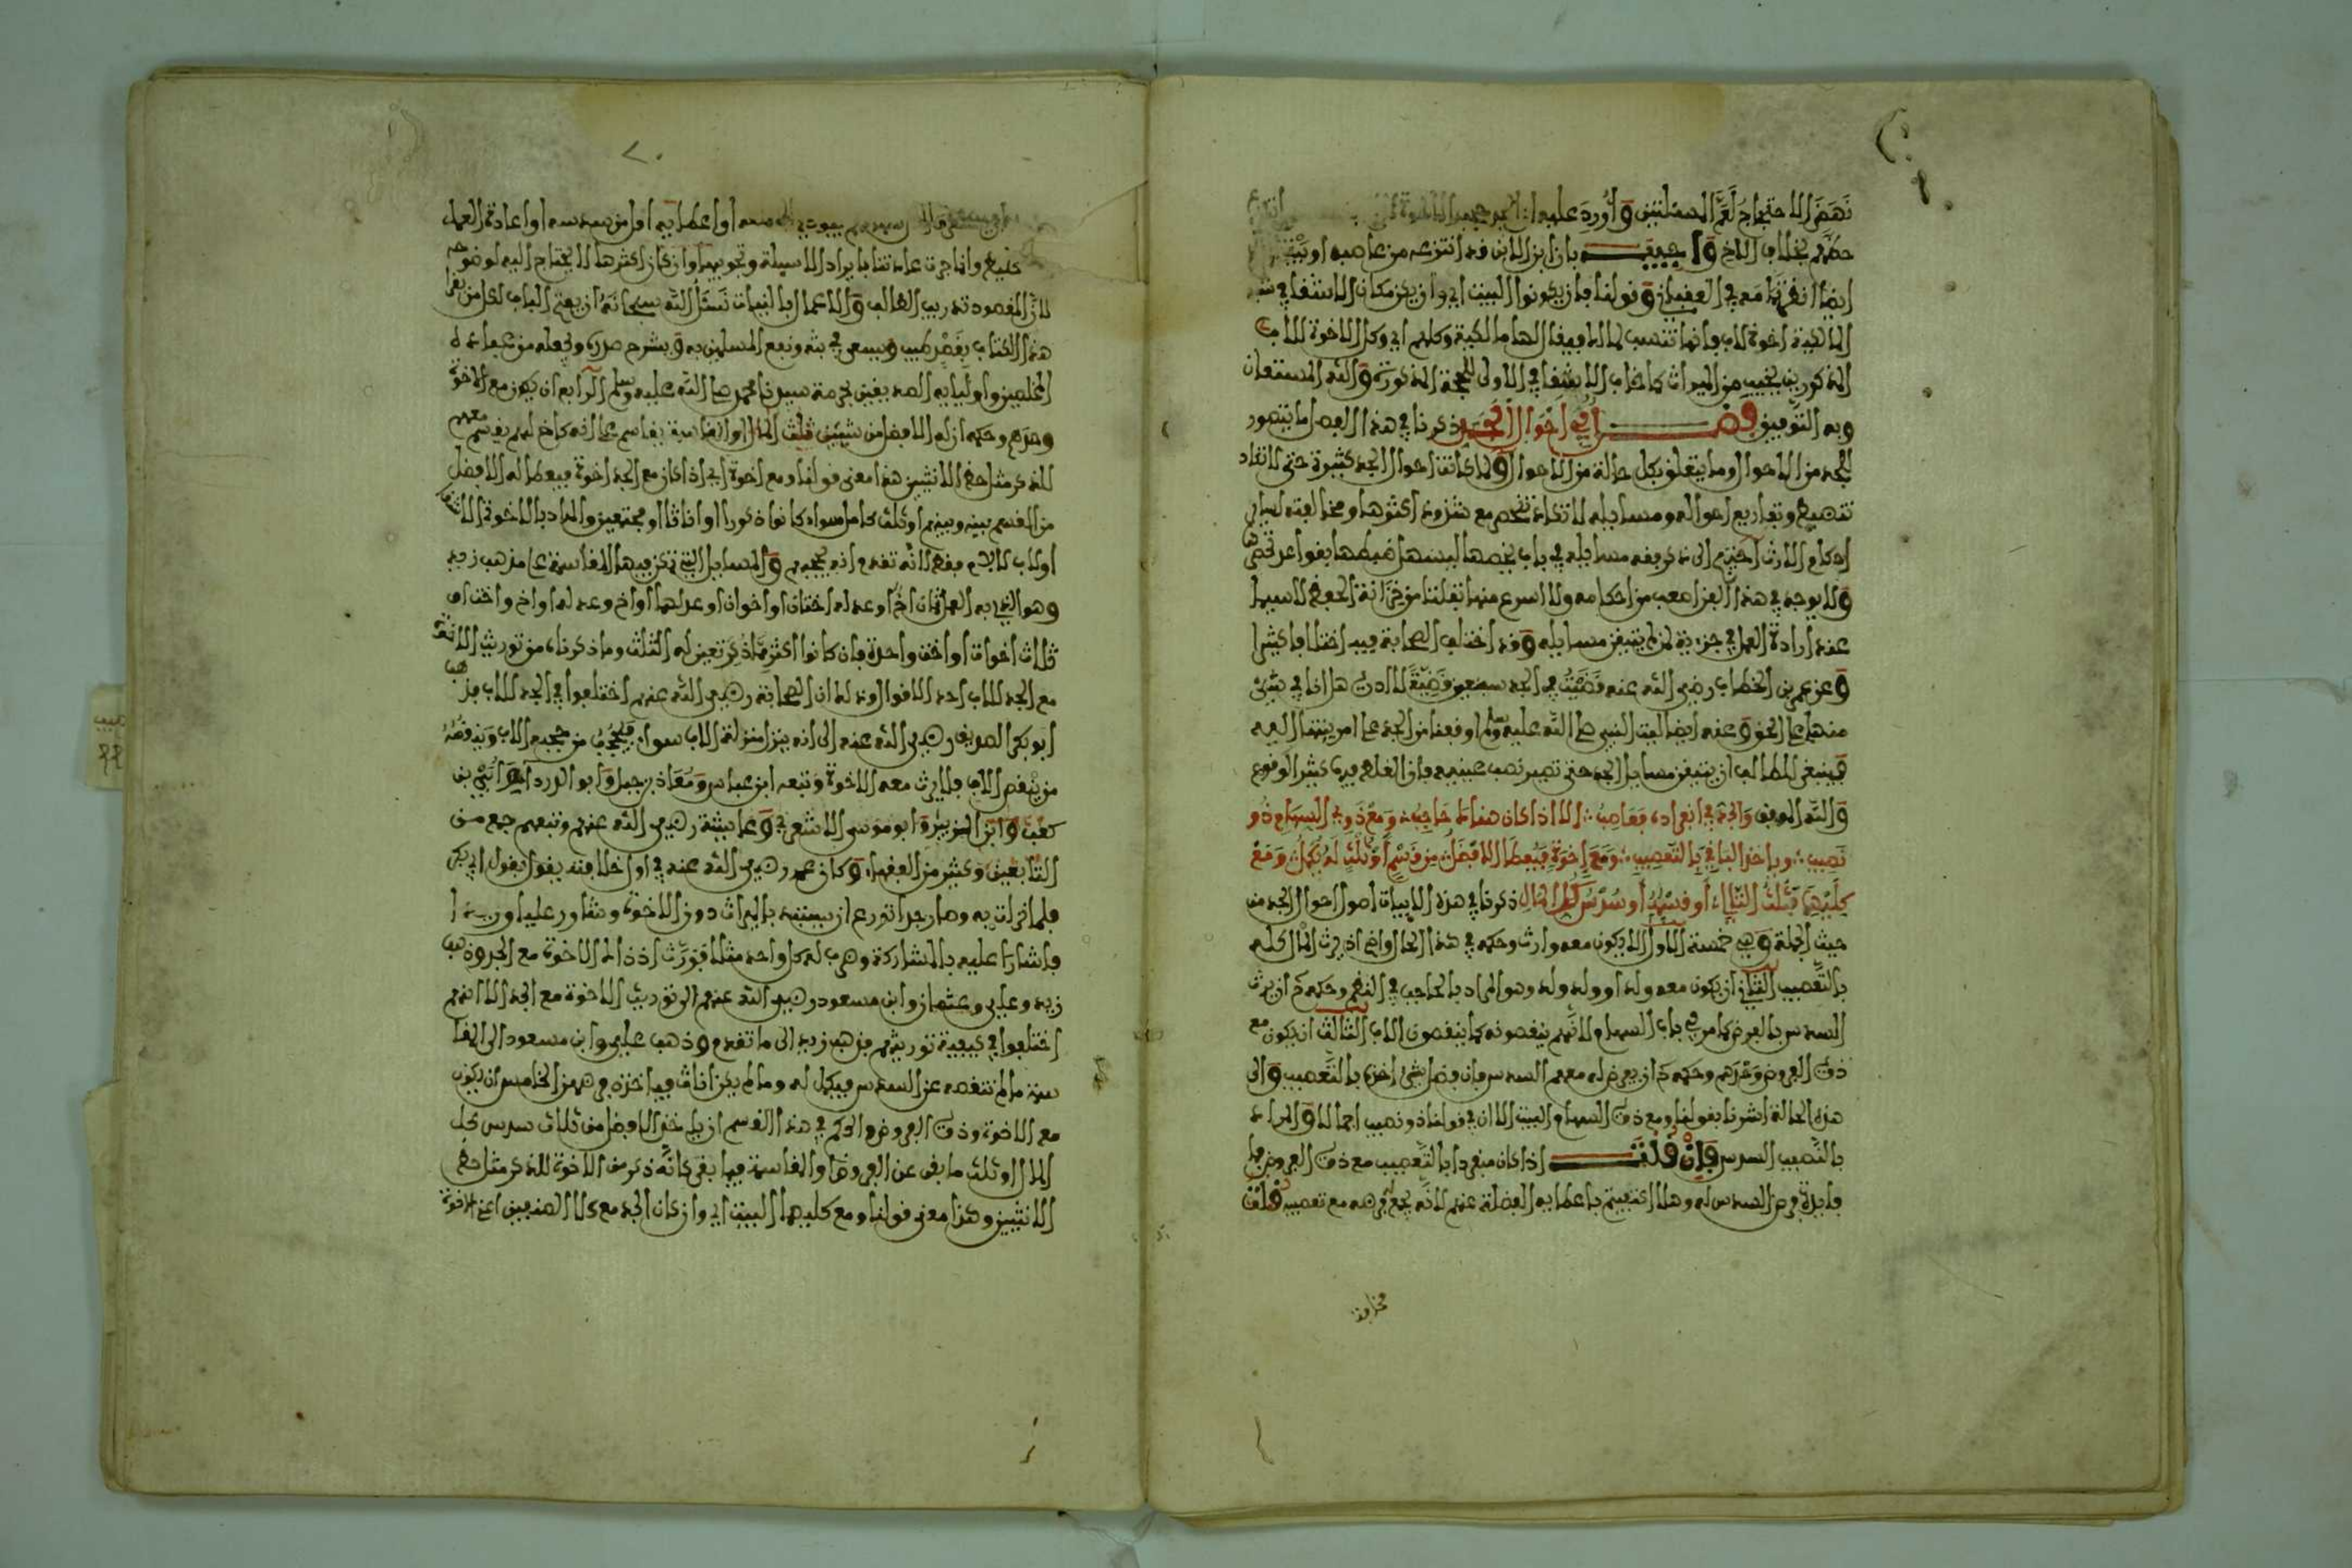 نهض الاحتجاج لعم المسئلتين وأورد عليه ان الجد حجب الاخوة
حظهم بخلاف الاخ وأجيب بان ابن الابن قد انتزعه من عاصبه
ايضا
المالكية اخوة لاب فانها تنسب لمالك فيقال لها مالكية وكلهم اي وكل الاخوة للام
المذكورين يخيب من الميراث كما خاب الاشقا في الاولى للحجة المذكورة والله المستعان
وبه التوفيق فصل في احوال الجد ذكرنا في هذا الفصل ما يتصور
للجد من الاحوال وما يتعلق بكل حالة من الاحوال ولما كانت احوال الجد كثيرة حتى لا تكاد
تنضبط وتفاريع احواله ومسايله لا تكاد تنحصر مع شذوذ اكثرها ومخالفته لساير
احكام الارث احتيج الى ذكر بقية مسايله في باب يخصها ليسهل ضبطها بقواعد تخصها
ولا يوجد في هذا الفن اصعب من احكامه ولا اسرع منها تفلتا من خزانة الحفظ لا سيما
عند ارادة العمل في جزءية لمن لم يتيقن مسايله وقد اختلف الصحابة فيه اختلافا كثيرا
وعن عمر بن الخطاب رضي الله عنه قضيت في الجد سبعين قضية لا ادري هل انا في شيء
منها على الحق وعنه ايضا ليت النبي صلى الله عليه وسلم اوقفنا من الجد على امر ينتهى اليه
فينبغي للطالب ان يتيقن مسايل الجد حتى تصير نصب عينيه فان الغلط فيها كثير الوقوع
والله الموفق والجد في انفراده فعاصب ∴ الا اذا كان هناك حاجب ومع ذوي السهام ذو
نصيب ∴ وياخذ الباقي بالتعصيب ∴ ومع اخوة فيعطى الافضل من قسم او ثلث له يكمل ومع
كليهما فثلث التالي او قسمة او سدس كل المال ذكرنا في هذه الابيات اصول احوال الجد من
حيث الجملة وهي خمسة الاول الا يكون معه وارث وحكمه في هذا الحال واضح اذ يرث المال كله
بالتعصيب الثاني ان يكون معه ولد او ولد ولد وهو المراد بالحاجب في النظم وحكمه ان يرث
السدس بالفرض كما مر في باب السهام لانهم ينقصونه كما ينقصون الاب الثالث ان يكون مع
ذوي الفروض وغيرهم وحكمه ان يفرض له معهم السدس فان فضل شيء اخذه بالتعصيب والى
هذه الحالة اشرنا بقولنا ومع ذوي السهام البيت الا ان في قولنا ذو نصيب اجمالا والمراد
بالنصيب السدس فان قلت اذا كان منفردا بالتعصيب مع ذوي الفروض فما
فايدة فرض السدس له وهلا اكتفيتم باعطايه الفضلة عنهم لانه يجمع فرضه مع تعصيبه قلت
فخرافة
ـع وانما جرت عادتنا بايراد الاسيلة وتجويبها وان كان اكثرها لا يحتاج اليه لوضوحه
لان المقصود تدريب الطالب والاعمال بالنيات نسئل الله سبحانه ان يفتح الباب لكل من يقرا
هذا الكتاب بقصد طيب ويسعى في بثه ونفع المسلمين به ويشرح صدره ويجعله من عباده
المخلصين واوليايه الصديقين بحرمة سيدنا محمد صلى الله عليه وسلم الرابع ان يكون مع الاخوة
وحدهم وحكمه ان له الافضل من شيئين ثلث المال او المقاسمة يقاسم على انه كاخ لهم يقسم معهم
للذكر مثل حظ الانثيين هذا معنى قولنا ومع اخوة اي اذا كان مع الجد اخوة فيعطى له الافضل
من القسم بينه وبينهم او ثلث كامل سواء كانوا ذكورا او اناثا او مجتمعين والمراد بالاخوة الاشقا
او لاب لا لام فقط لانه تقدم انه يحجبهم والمسايل التي تمكن فيها المقاسمة على مذهب زيد
وهو الذي به العمل ثمان اخ او عدله اختان او اخوان او عدلهما او اخ وعدله او اخ واخت او
ثلاث اخوات او اخت واحدة فان كانوا اكثر مما ذكر تعين له الثلث وما ذكرناه من توريث الاشقا
مع الجد للاب احد الاقوال وذلك ان الصحابة رضي الله عنهم اختلفوا في الجد للاب فذهب
ابو بكر الصديق رضي الله عنه الى انه ينزل منزلة الاب سواء فيحجب من حجبه الاب وينقصه
من ينقص الاب فلا يرث معه الاخوة وتبعه ابن عباس ومعاذ بن جبل وابو الدرداء وابي بن
كعب وابن الزبير وابو موسى الاشعري وعايشة رضي الله عنهم وتبعهم جمع من
التابعين وكثير من الفقهاء وكان عمر رضي الله عنه في اول خلافته يقول بقول ابي بكر
فلما نزلت به وصار جدا تورع ان يستبد بالميراث دون الاخوة وشاور عليا وزيدا
فاشارا عليه بالمشاركة وضرب له كل واحد مثلا فورث اذ ذاك الاخوة مع الجد وذهب
زيد وعلي وعثمان وابن مسعود رضي الله عنهم الى توريث الاخوة مع الجد الا انهم
اختلفوا في كيفية توريثهم فذهب زيد الى ما تقدم وذهب علي وابن مسعود الى المقا
سمة ما لم تنقصه عن السدس فيكمل له وما لم يكن اناث فياخذن فرضهن الخامس ان يكون
مع الاخوة وذوي الفروض والحكم في هذا القسم ان ياخذ الافضل من ثلاث سدس كل
المال او ثلث ما بقي عن الفروض او المقاسمة فيما بقي كانه ذكر من الاخوة للذكر مثل حظ
الانثيين وهذا معنى قولنا ومع كليهما البيت اي وان كان الجد مع كلا الصنفين اعني الاخوة